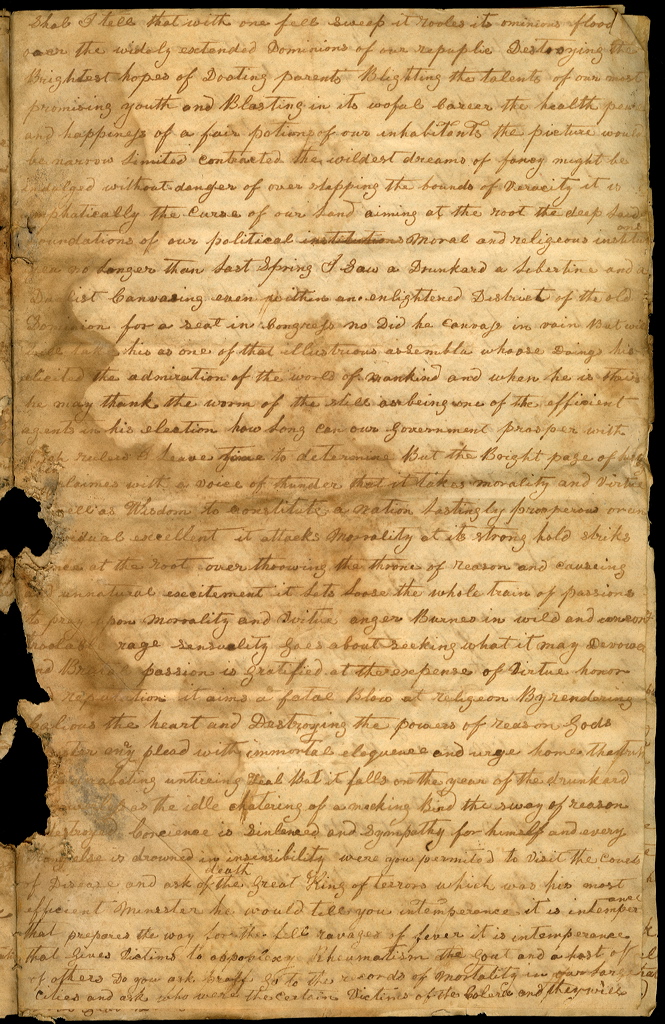 Shal I tell that with one fell sweep it rooles its ominious flood
over the widely extended Dominions of our repuplic Destroying the
Brightest hopes of Doating parents Blighting the talents of our most
promising youth and Blasting in its wofal career the health peace
and happiness of a fair potion of our inhabitants the picture would
be narrow limited contracted the wildest dreams of fancy might be
indulged without danger of over stepping the bounds of veracity it is
emphatically the Curse of our land aiming at the root the deep laid
foundations of our political institutions moral and religeous
no longer than last Spring I Saw a Drunkard a libertine and a
Canvasing even within an enlightened District of the old
Dominion for a seat in Congress no Did he canvass in vain But
his as one of that illustrious assembla whoose Doings has
elicited the admiration of the world of mankind and when he is this
he may thank the worm of the still as being one of the efficient
agents in his election how long can our government prosper with
ruled I leave time to determine But the Bright page of
claimes with a voice of thunder that it takes morality and Virtue
as well as Wisdom to constitute a nation lastingly prosperous or an
individual excellent it attacks morality at its strong hold striks
once at the root over throwing the throne of reason and causeing
unnatural excitement it lets loose the whole train of passions
to pray upon morality and virtue anger Burnes in wild and
rage sensuality goes about seeking what it may Devour
and Brutal passion is gratified at the expense of Virtue honor
reputation it aims a fatal Blow at religeon By rendering
the heart and Destroying the powers of reason Gods
may plead with immortal eloquence and urge home the truth
unabating unticeing Zeal But it falls on the year of the drunkard
as the idle chatering of a mocking Bird the sway of reason
destroyed Concience is Silenced and Sympathy for himself and every
thing else is drowned in insensibility were you permited to visit the
death
of Disease and ask of the great King of terrors which was his most
efficient Menester he would tell you intemperance it is intemperance
that prepares the way for the fell ravages of fever it is intemperance
that gives Victims to appoplexy Rheumatism the Gout and a host of
of others Do you ask proff go to the records of mortality in our large
cities and ask who were the certain Victims of the Colera and they will